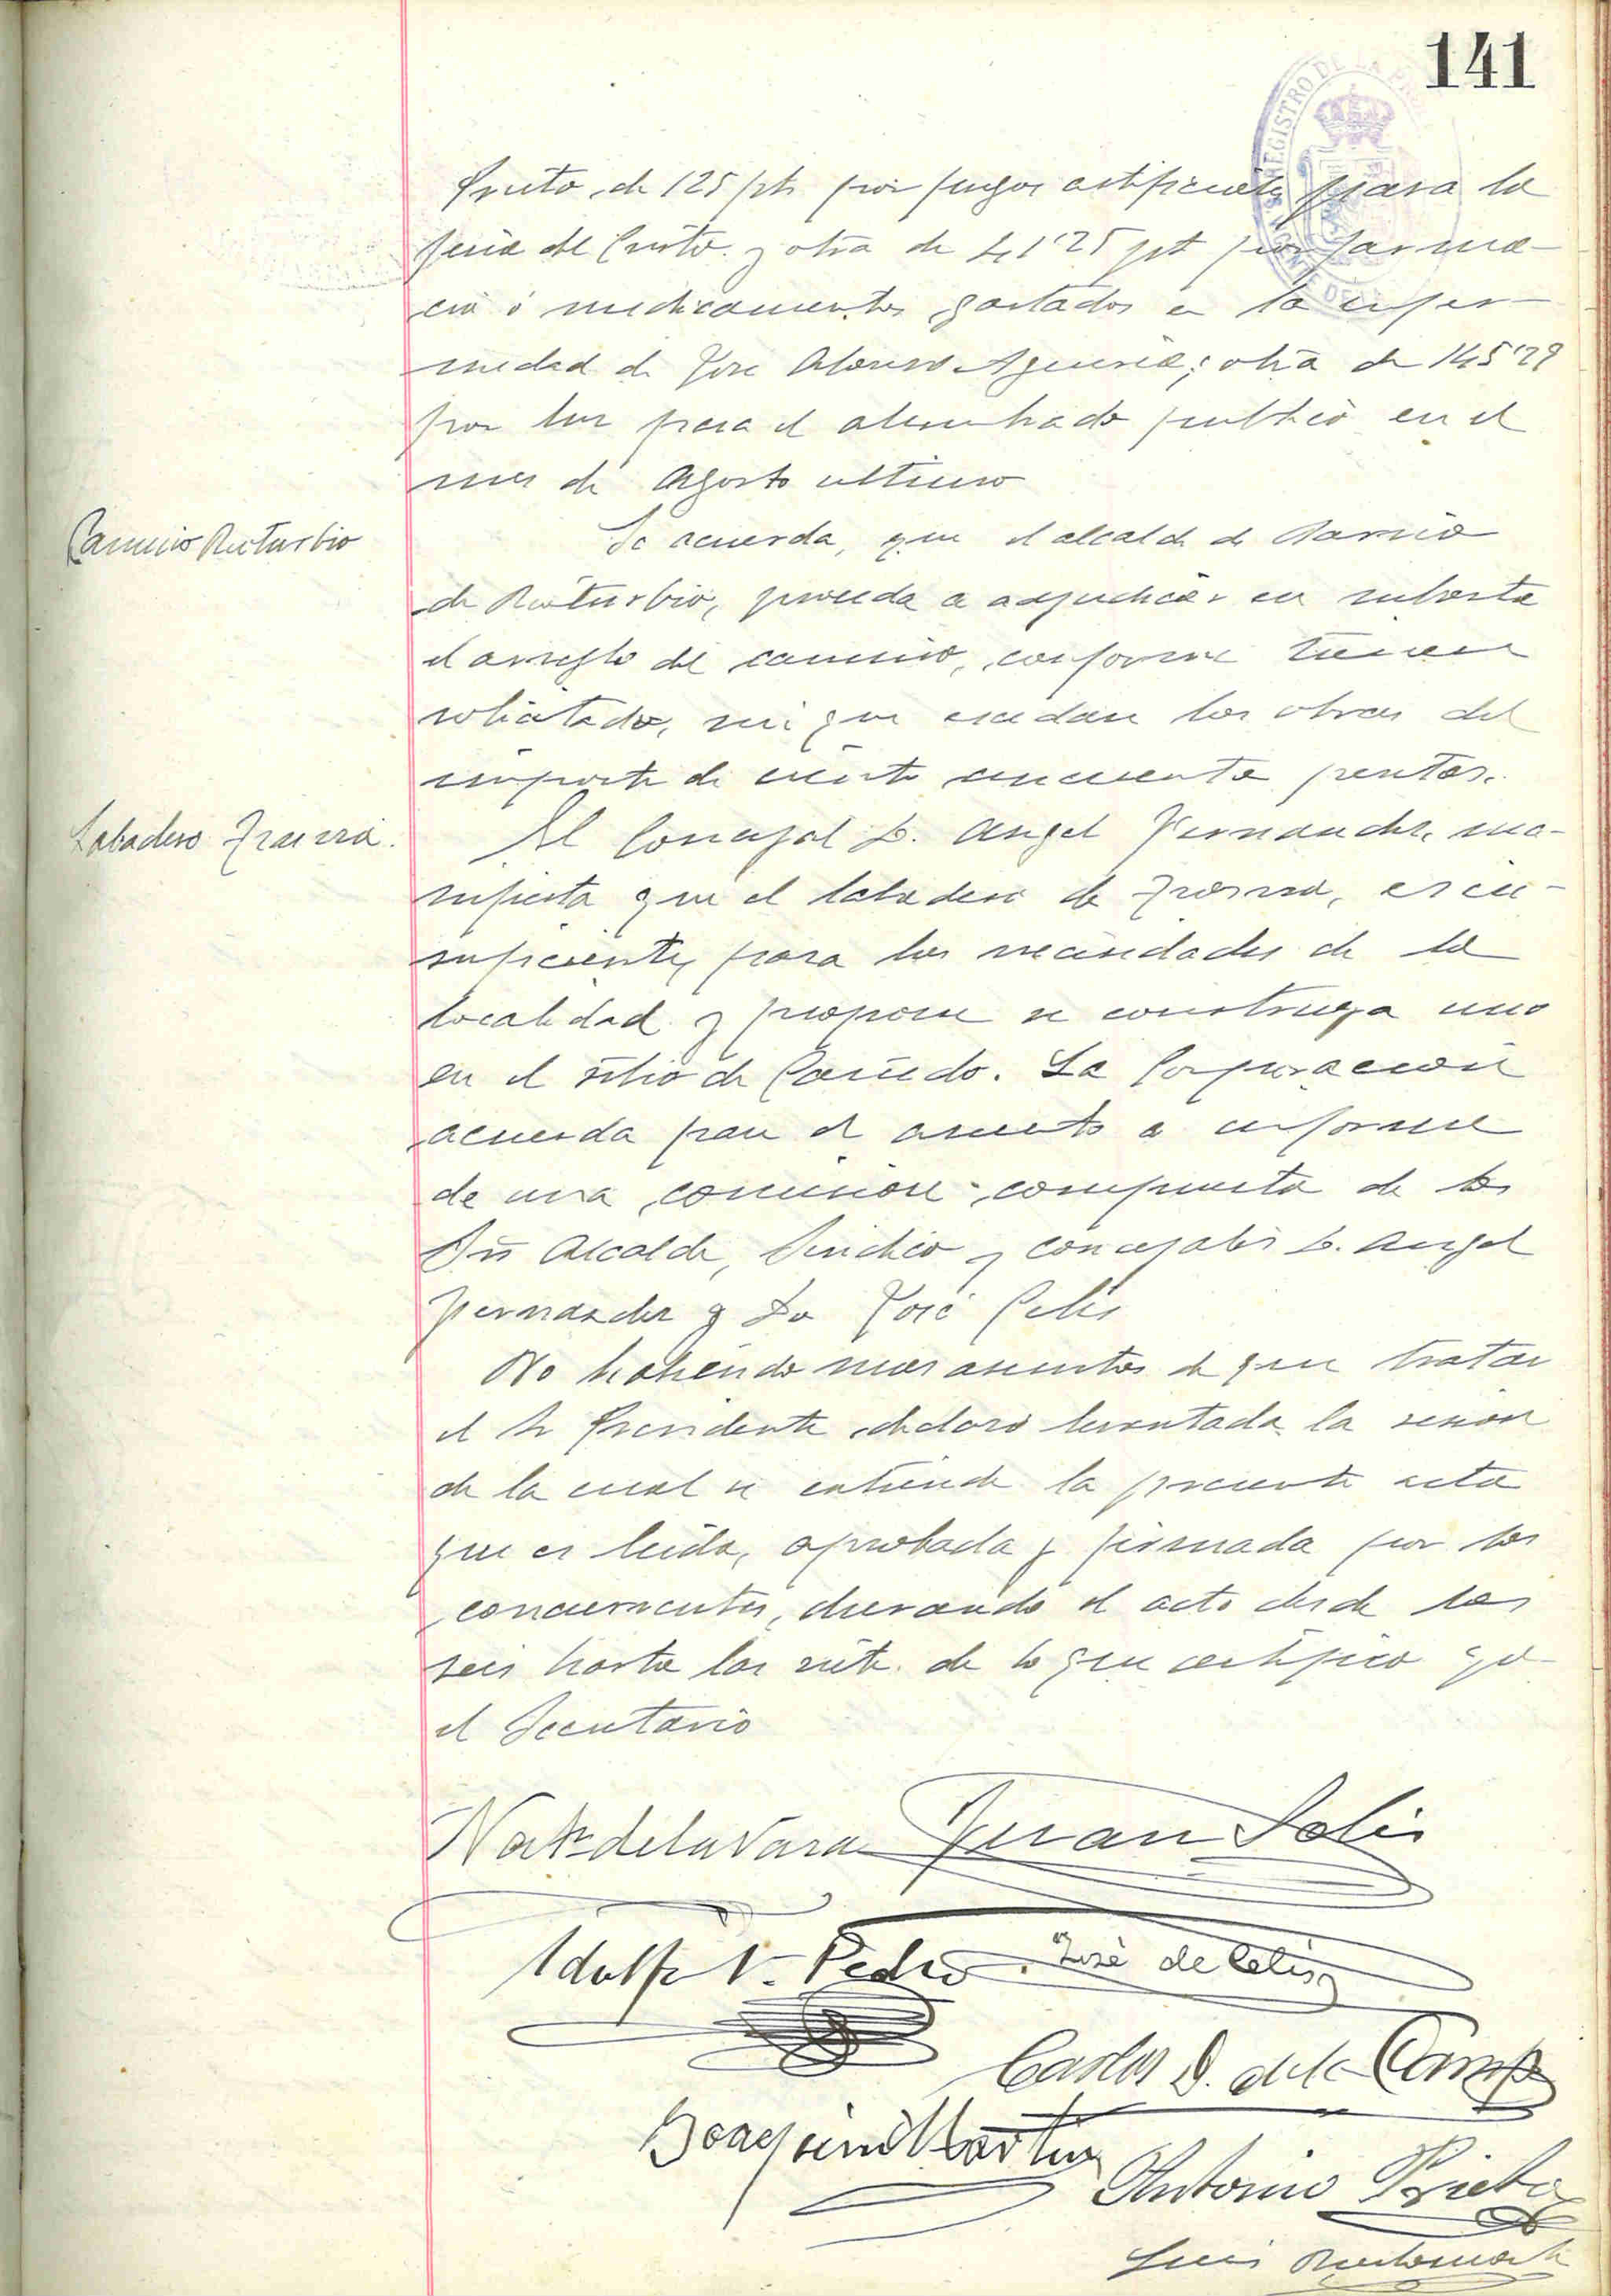 141
Prieto, de 125 pts por fuegos artificiales para la
feria del Cristo. y otra de 41'25 pts por farma-
cia ó medicamentos gastados en la enfer-
medad de Jose Alonso Agueria; otra de 145'29
por luz para el alumbrado publico en el
mes de Agosto ultimo
Camino Rioturbio
Se acuerda, que el alcalde de Barrio
de Rioturbio, proceda a adjudicar en subasta
el arreglo del camino, conforme tienen
solicitado, sin que escedan las obras del
importe de ciento cincuenta pesetas.
Labadero
El Concejal D. Angel Fernandez, ma-
nifiesta que el labadero de es in-
suficiente, para las necesidades de la
localidad y propone se construya uno
en el sitio de Cañedo. La Corporacion
acuerda pase el asunto a informe
de una comision compuesta de los
Sres Alcalde, Sindico y concejales D. Angel
Fernandez y Dn José Celis
No habiendo mas asuntos de que tratar
el Sr Presidente declaro levantada la sesion
de la cual se extiende la presente acta
que es leida, aprobada y firmada por los
concurrentes, durando el acto desde las
seis hasta las siete. de lo que certifico yo
el Secretario
de la Vara Juan Solis
Adolfo V. Pedro José de Celis
Carlos D. de la Campa
Joaquin Martinez
Antonio Prieto
Luis